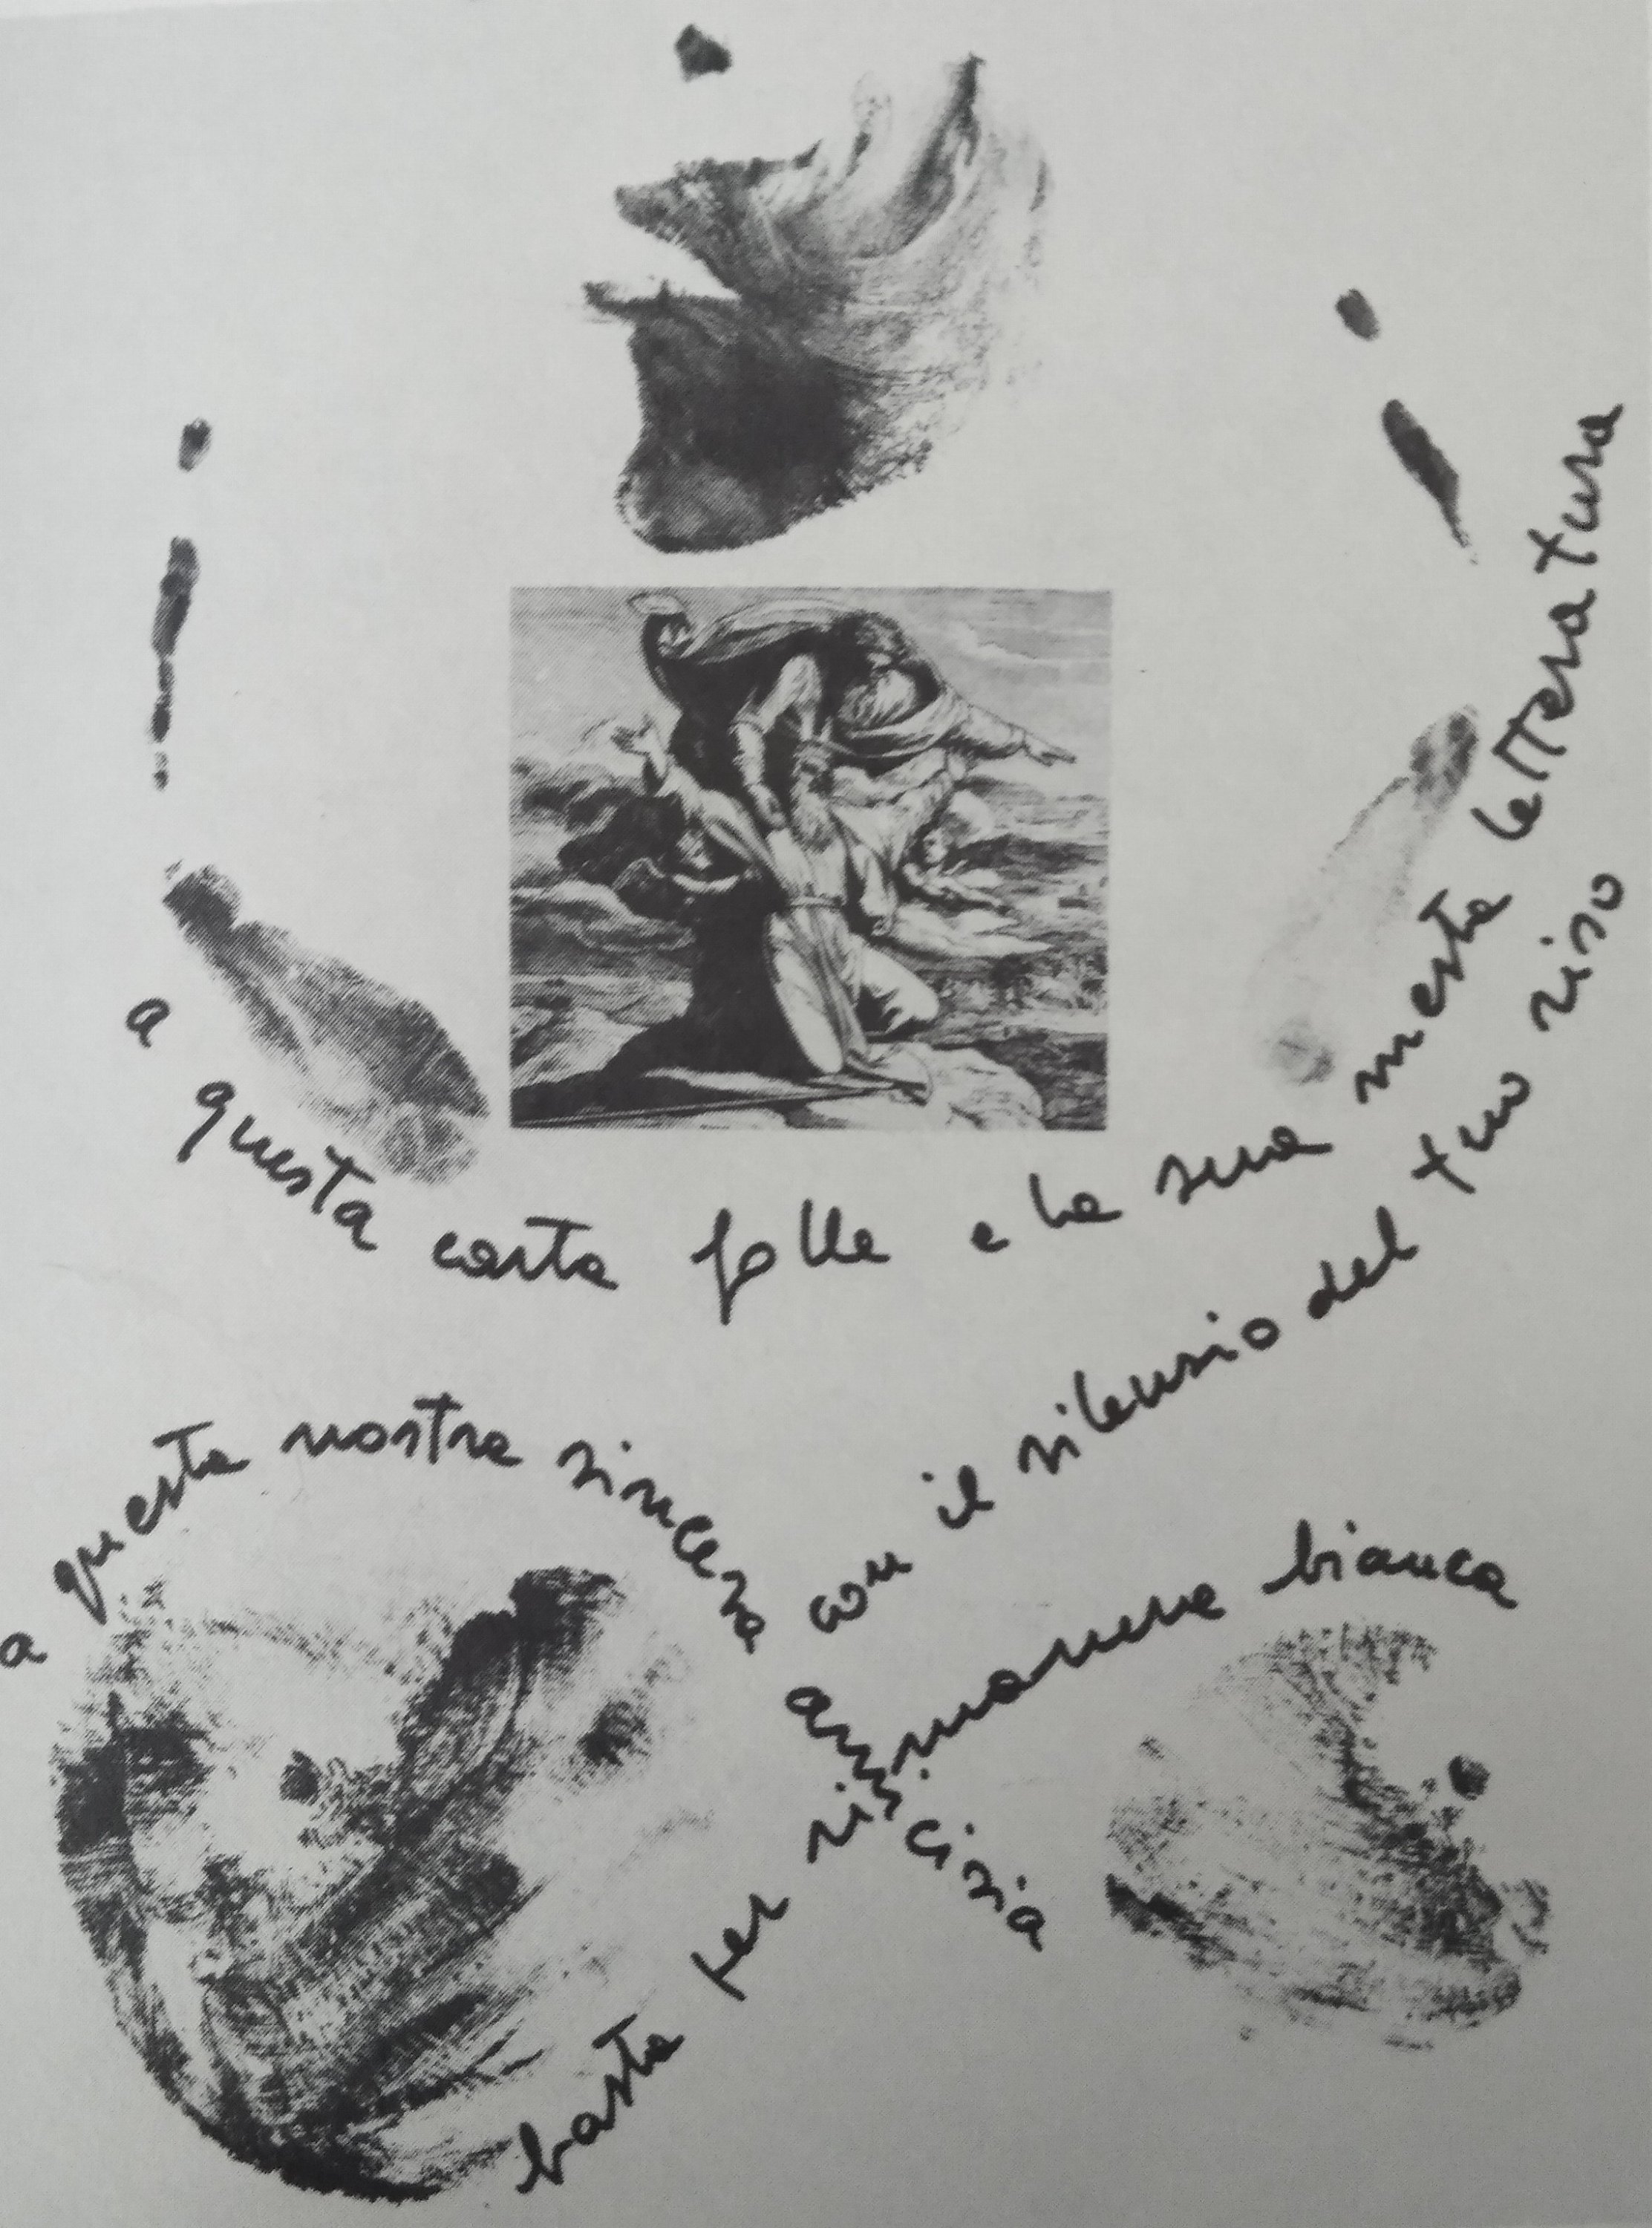 a questa carta folle e la sua mesta letteratura
a questa nostra sincera amicizia
con il silenzio del tuo riso
basta per rimanere bianca